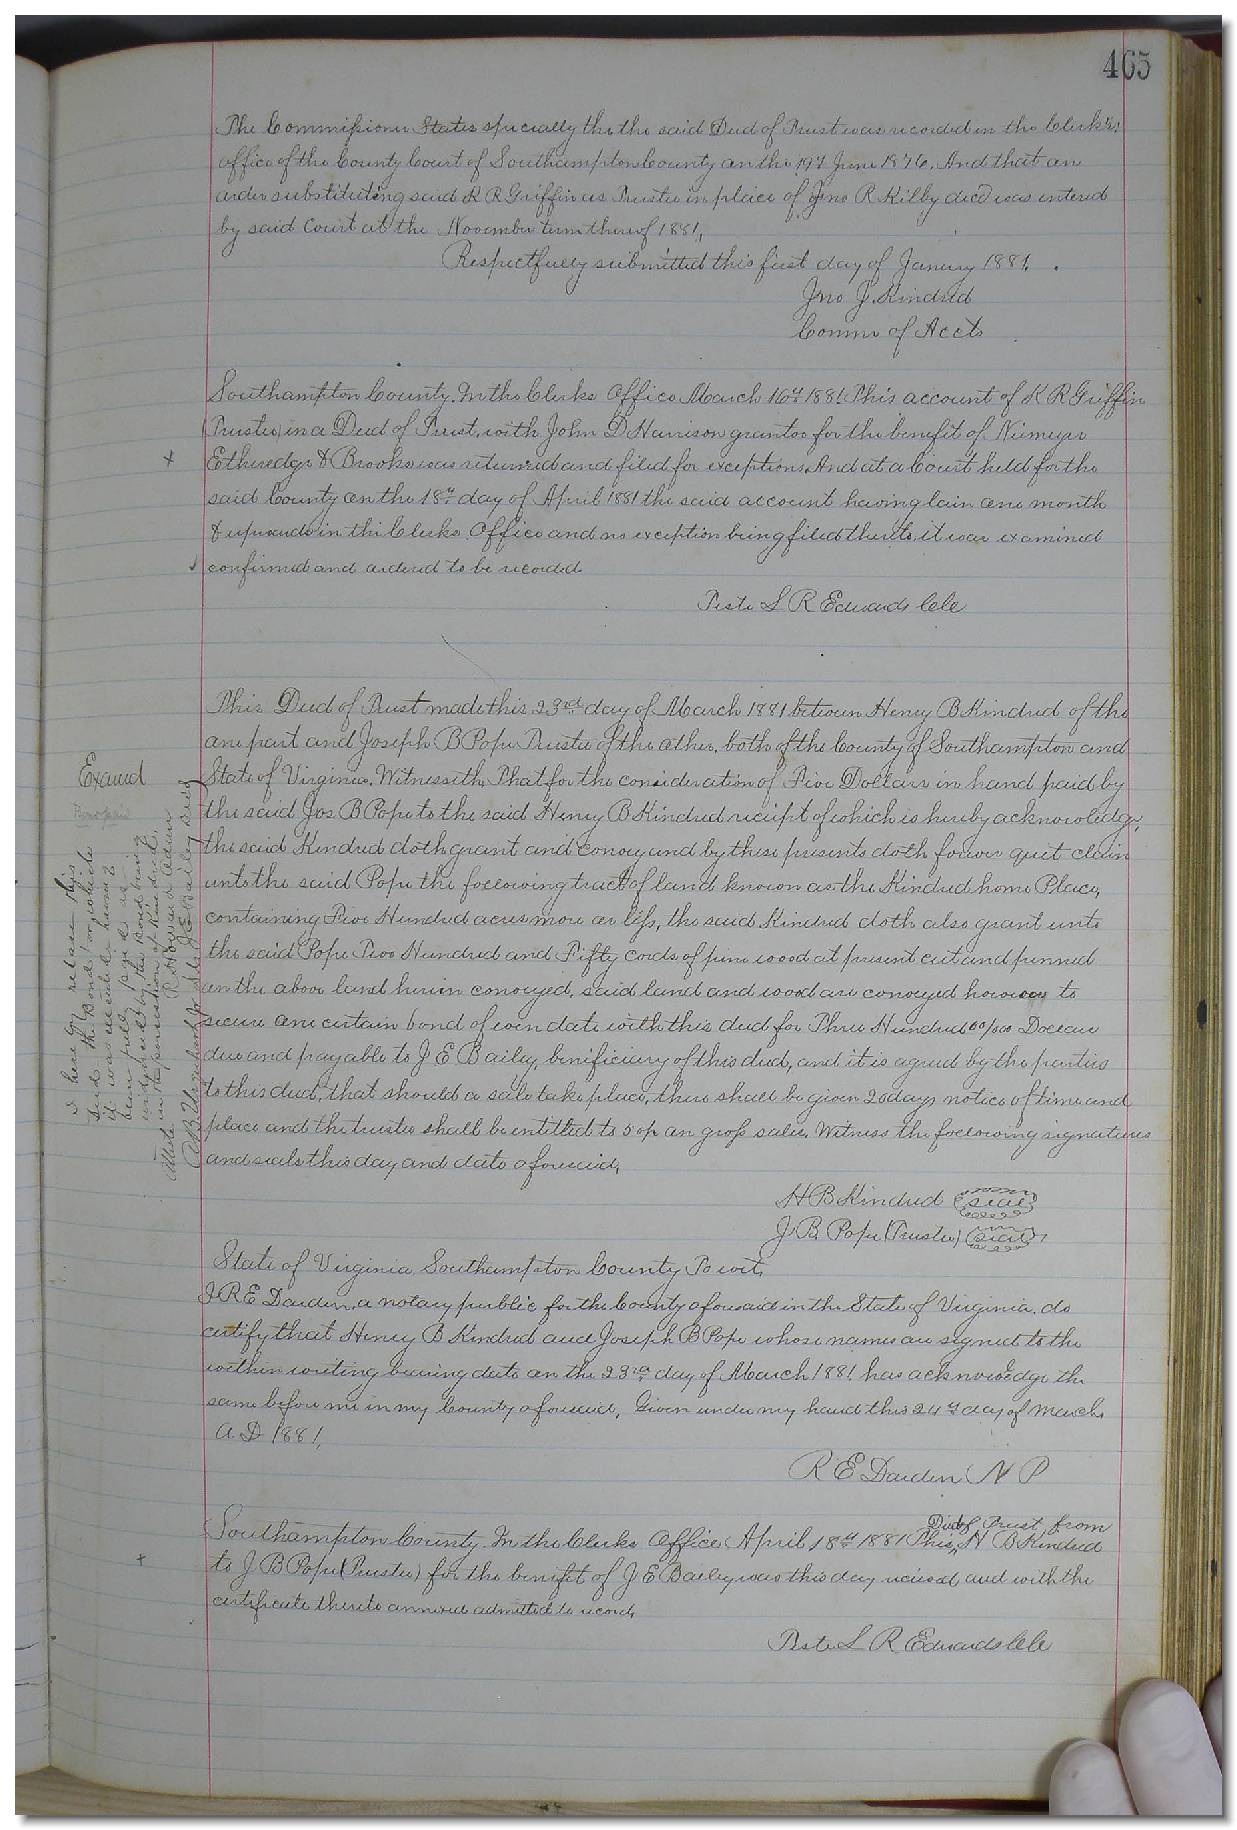 465
The Commissioner States specially the the said Deed of Trust was recorded in the Clerk's
office of the County Court of Southampton County on the 19th June 1876. And that an
order substituting said K R Griffin as Trustee in place of Jno R Kilby decd was entered
by said Court at the November term thereof 1881,
Respectfully submitted this first day of January 1881.
Jno J. Kindred
Comms of Accts
Southampton County. In the Clerks Office March 16th 1881. This account of K R Griffin
(Trustee) in a Deed of Trust, with John D Harrison grantor for the benefit of Niemeyer
Etheredge & Brooks was returned and filed for exceptions. And at a Court held for the
said County on the 18th day of April 1881 the said account having lain one month
& upwards in the Clerks Office and no exception being filed thereto it was examined
confirmed and ordered to be recorded
Teste L R Edwards Clk
This Deed of Trust made this 23rd day of March 1881 between Henry B Kindred of the
one part and Joseph B Pope Trustee of the other, both of the County of Southampton and
State of Virginia. Witnesseth, That for the consideration of Five Dollars in hand paid by
the said Jos B Pope to the said Henry B Kindred reciept of which is hereby acknowledge,
the said Kindred doth grant and convey and by these presents doth forever quet claim
unto the said Pope the following tract of land known as the Kindred home Place,
containing Five Hundred acres more or less, the said Kindred doth also grant unto
the said Pope Two Hundred and Fifty cords of pine wood at present cut and penned
on the above land herein conveyed, said land and wood are conveyed however to
secure one certain bond of even date with this deed for Three Hundred 00/100 Dollars
due and payable to J E Bailey, benificiary of this deed, and it is agreed by the parties
to this deed, that should a sale take place, there shall be given 20 days notice of time and
place and the trustee shall be entitled to 5 o/o on gross sales. Witness the following signatures
and seals this day and date aforesaid,
H B Kindred (seal)
J B. Pope (Trustee) (seal)
State of Virginia Southampton County To wit,
I R E Darden, a notary public for the County aforesaid in the State of Virginia, do
certify that Henry B Kindred and Joseph B Pope whose names are signed to the
within writing bearing date on the 23rd day of March 1881 has acknowledge the
same before me in my County aforesaid, Given under my hand this 24th day of March
A.D 1881,
R E Darden N P
Southampton County. In the Clerks Office April 18th 1881 This Deed of Trust from H B Kindred
to J B Pope (Trustee) for the benefit of J E Bailey was this day received and with the
certificate thereto annexed admitted to record,
Teste L R Edwards Clk
Examd
I here by release this
deed the Bond to
it was executed
been fully paid as
evidenced by the Bond being
in the possession of
Atteste
J E Bailey decd